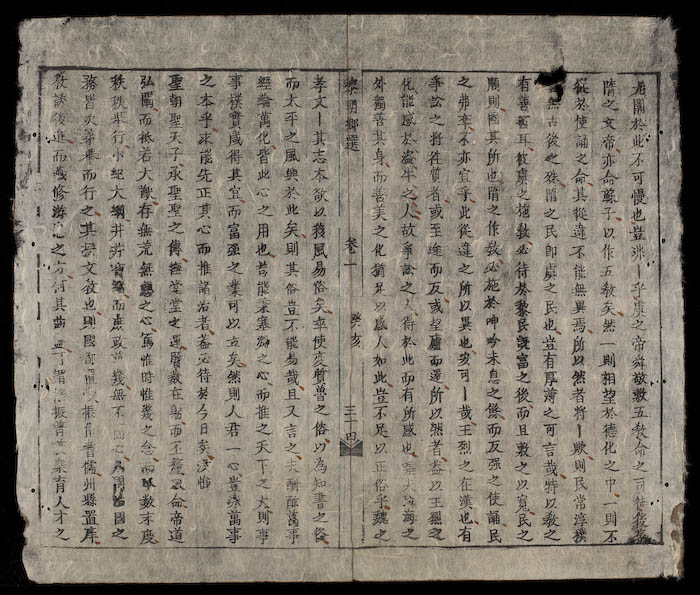 關於此不可慢也豈非一乎虞之帝舜敬敷五教命之司徒
隋之文帝亦命蘇子以作五教矣然一則相望於德化之中一則不
從於使誦之命其從違不能無異焉所以然者將一歟則民常淳樸
無古後之殊隋之民卽虞之民也豈有厚薄之可言哉特以教之
有善否耳故虞之施教必待於黎民旣富之後而且敷之以寬民之
順則固其所也隋之作教必施於呻吟未息之餘而反强之使誦民
之弗率不亦宜乎此從違之所以異也安可一哉王烈之在漢也有
爭訟之將往質者或至途而反或望廬而還所以然者盖以王烈之
化能感於盜牛之人故爭訟之人得於此而有所感也大海之
外獨善其身而善美之化猶足以感人如此豈不足以正俗乎魏之
黎朝鄉選 卷一 癸亥 三十四
孝文一其志本欲以移風易俗矣卒使变質魯之俗以為知書之俗
而太平之風興於此矣則其俗豈不能易哉且又言之夫酬酢萬事
經綸萬化皆此心之用也苟能以塞淵之心而推之天下之大則事
事樸實咸得其宜而富强之業可以古矣然則人君一心豈非萬事
之本乎求能先正其心而推諸治者盖必待於今日矣洪惟
聖朝聖天子承聖聖之傳撫堂堂之運曆數在躬而不替哀命帝道
弘闡而祗若大猷存無荒無怠之心篤惟時惟幾之念而其敷求度
秩秩舉行小紀大綱井井實而庶政幾無不同心為國治國之
務皆次第舉而行之其於文教也則國都置學振作普儒州縣置庠
教誘後進而藏修游息之方何其曲且謂振普業育人才之